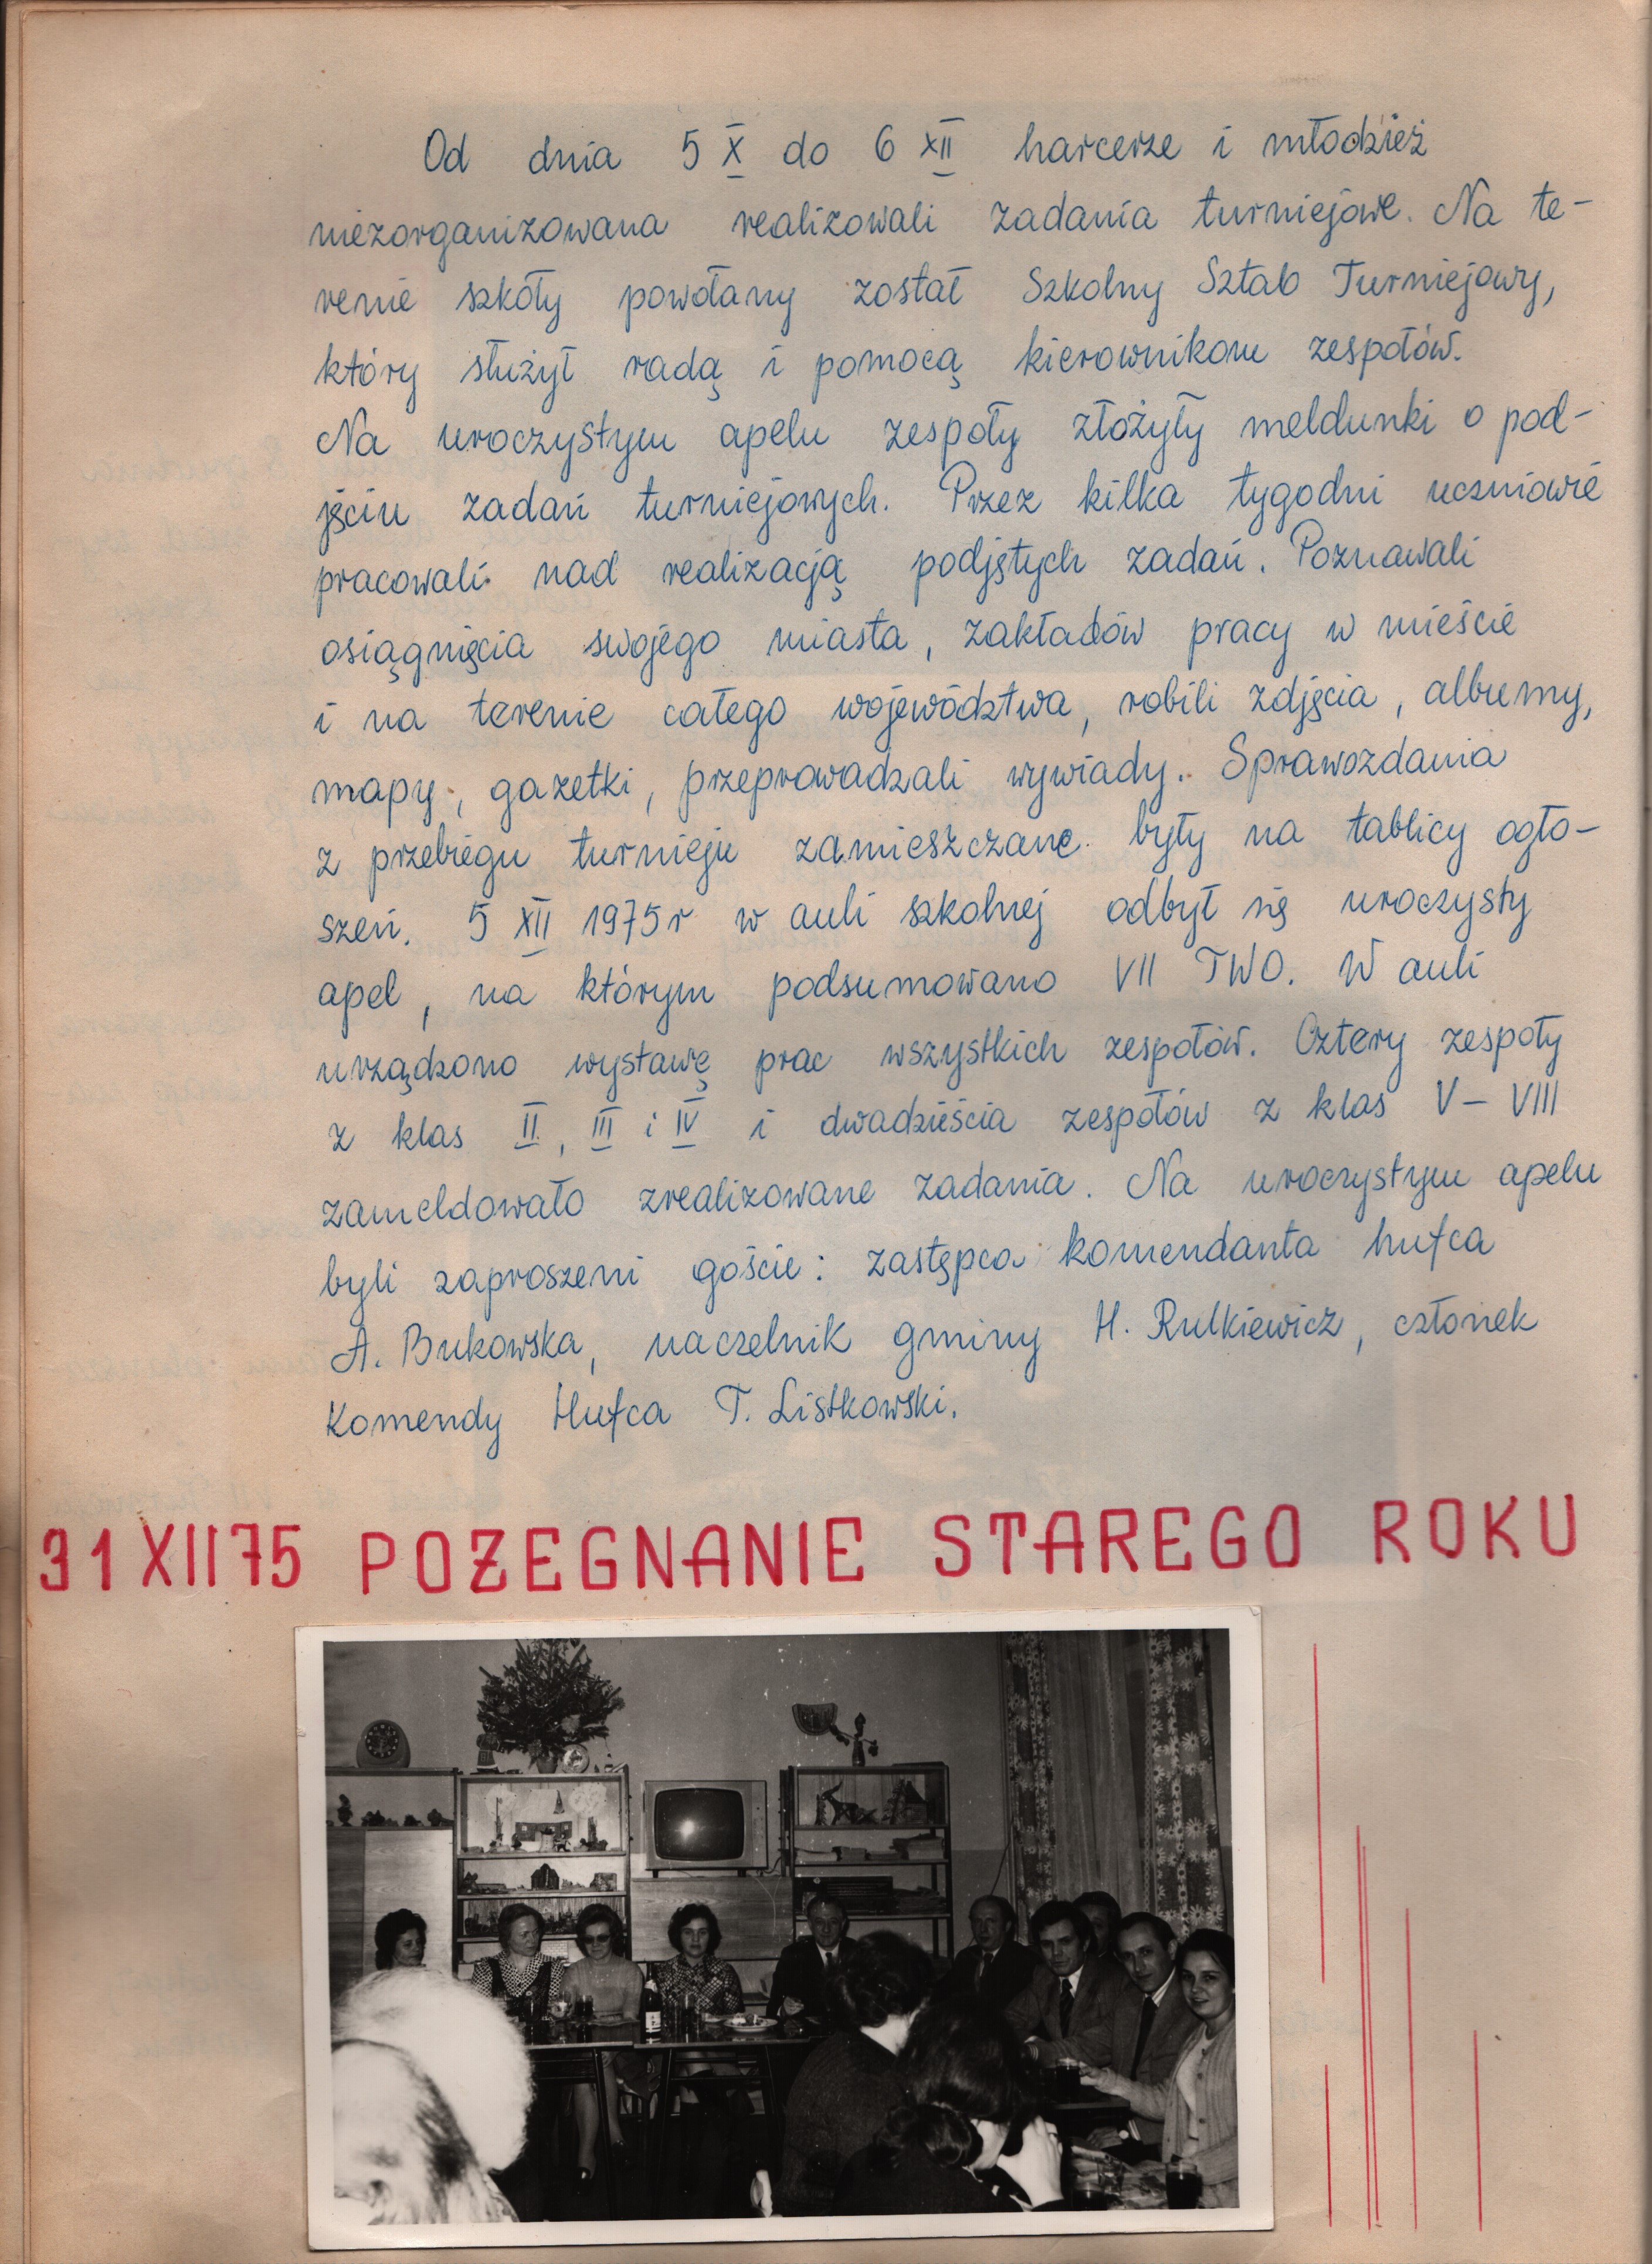 Od dnia 5 X do 6 XII harcerze i młodzież
niezorganizowana realizowali zadania turniejowe. Na te-
renie szkoły powołany został Szkolny Sztab Turniejowy,
który służył radą i pomocą kierownikom zespołów.
Na uroczystym apelu zespoły złożyły meldunki o pod-
jęciu zadań turniejowych. Przez kilka tygodni uczniowie
pracowali nad realizacją podjętych zadań. Poznawali
osiągnięcia swojego miasta, zakładów pracy w mieście
i na terenie całego województwa, robili zdjęcia, albumy,
mapy, gazetki, przeprowadzali wywiady. Sprawozdania
z przebiegu turnieju zamieszczane były na tablicy ogło-
szeń. 5 XII 1975 r w auli szkolnej odbył się uroczysty
apel, na którym podsumowano VII TWO. W auli
urządzono wystawę prac wszystkich zespołów. Cztery zespoły
z klas II, III i IV i dwadzieścia zespołów z klas V – VIII
zameldowało zrealizowane zadania. Na uroczystym apelu
byli zaproszeni goście: zastępca komendanta hufca
A. Bukowska, naczelnik gminy H. Rulkiewicz, członek
Komendy Hufca T. Listkowski.
31 XII 75 POŻEGNANIE STAREGO ROKU